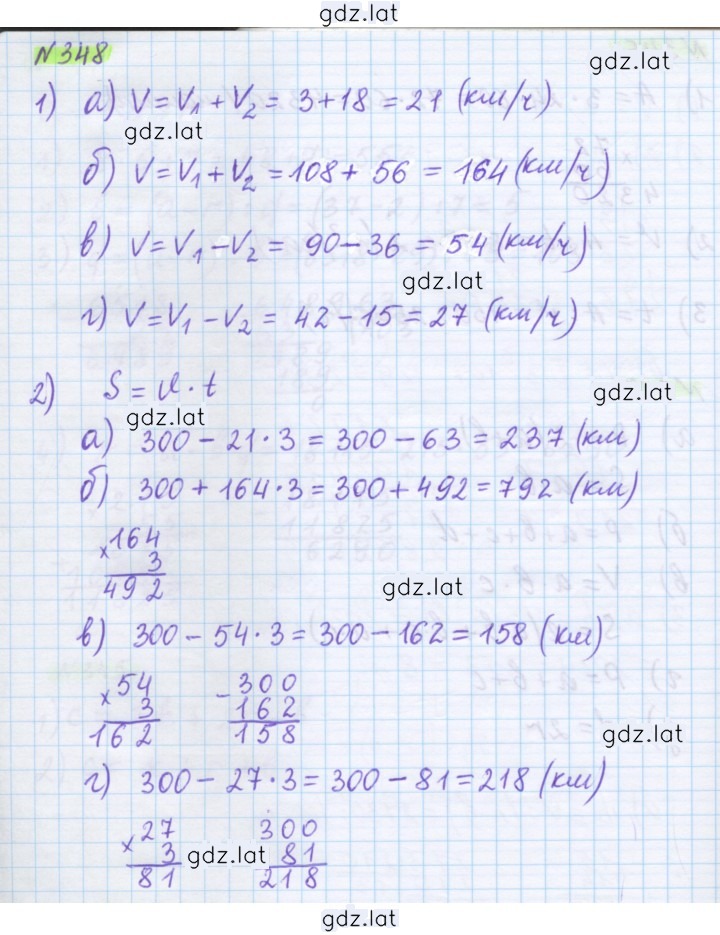 gdz.lat
№348
gdz.lat
1) а) V = V₁ + V₂ = 3 + 18 = 21 (км/ч)
gdz.lat
б) V = V₁ + V₂ = 108 + 56 = 164 (км/ч)
в) V = V₁ − V₂ = 90 − 36 = 54 (км/ч)
gdz.lat
г) V = V₁ − V₂ = 42 − 15 = 27 (км/ч)
2) S = v · t
gdz.lat
gdz.lat
а) 300 − 21 · 3 = 300 − 63 = 237 (км)
б) 300 + 164 · 3 = 300 + 492 = 792 (км)
× 164
3
492
gdz.lat
в) 300 − 54 · 3 = 300 − 162 = 158 (км)
× 54 − 300
3 162
162 158
gdz.lat
г) 300 − 27 · 3 = 300 − 81 = 218 (км)
× 27 300
3 gdz.lat 81
81 218
gdz.lat